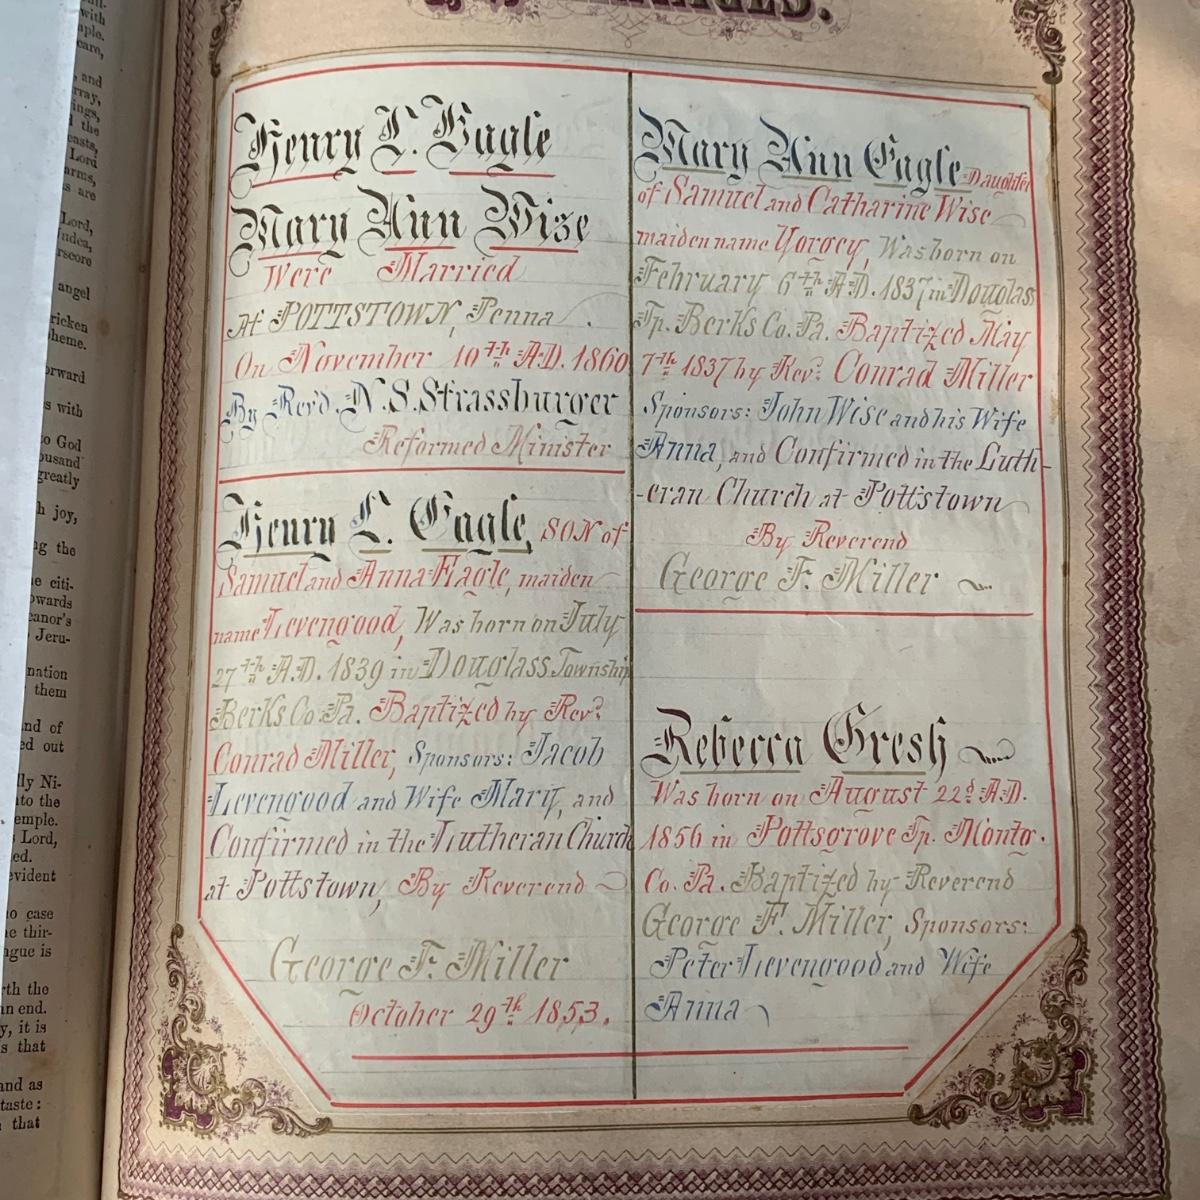 Henry L. Eagle
Mary Ann Wise
Were Married
At POTTSTOWN, Penna.
On November 10th A.D. 1860
By Rev'd. N.S. Strassburger
Reformed Minister
Henry L. Eagle, SON of
Samuel and Anna Eagle, maiden
name Levengood, Was born on July
27th A.D. 1839 in Douglass Township
Berks Co. Pa. Baptized by Revd.
Conrad Miller, Sponsors: Jacob
Levengood and Wife Mary, and
Confirmed in the Lutheran Church
at Pottstown, By Reverend
George F. Miller
October 29th 1853.
Mary Ann Eagle Daughter
of Samuel and Catharine Wise
maiden name Yorgey, Was born on
February 6th A.D. 1837 in Douglass
Tp. Berks Co. Pa. Baptized May
7th 1837 by Revd. Conrad Miller
Sponsors: John Wise and his Wife
Anna, and Confirmed in the Luth-
-eran Church at Pottstown
By Reverend
George F. Miller
Rebecca Gresh
Was born on August 22d A.D.
1856 in Pottsgrove Tp. Montg.
Co. Pa. Baptized by Reverend
George F. Miller, Sponsors:
Peter Levengood and Wife
Anna
with
care,
and
the
Lord
are
Lord,
angel
with
to God
greatly
joy,
the
Jeru-
them
and of
out
to the
Lord,
case
is
the
it is
that
and as
taste:
that